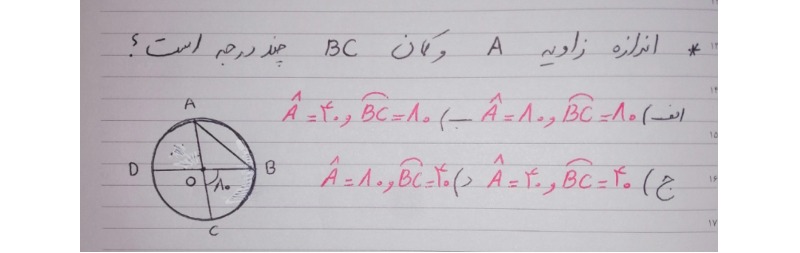 * اندازه زاویه A و کمان BC چند درجه است؟
الف) Â = ۸۰ , BC = ۸۰ ب) Â = ۴۰ , BC = ۸۰
ج) Â = ۴۰ , BC = ۴۰ د) Â = ۸۰ , BC = ۴۰
A
D O ۸۰ B
C
۱۵
۱۶
۱۷